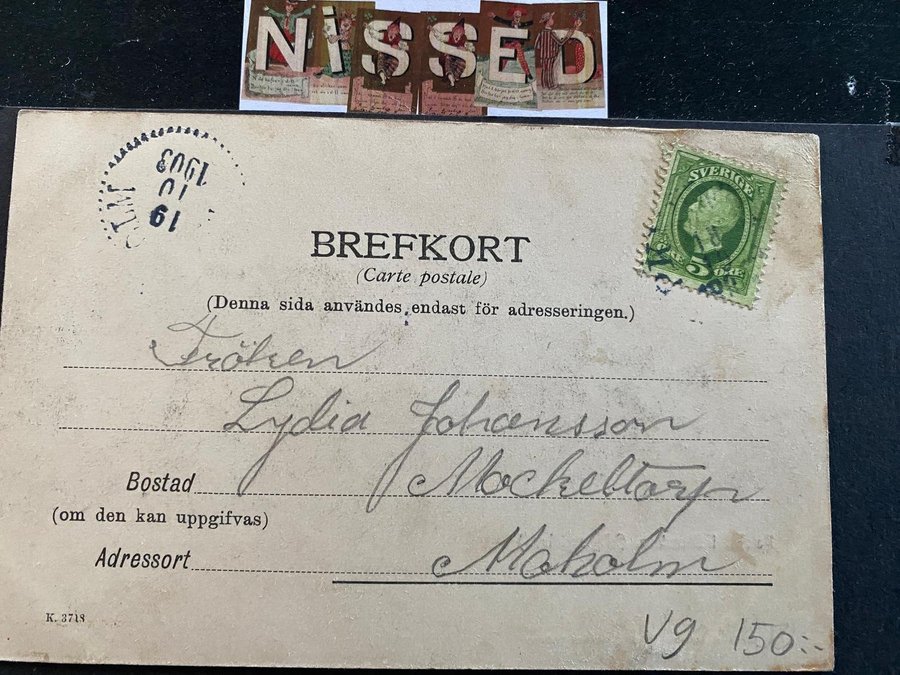 NISSED
1903
10
19
LM
SVERIGE
5 ÖRE
BREFKORT
(Carte postale)
(Denna sida användes endast för adresseringen.)
Fröken
Lydia Johansson
Bostad Mockeltorp
(om den kan uppgifvas)
Adressort Moholm
K. 3718
Vg 150:-